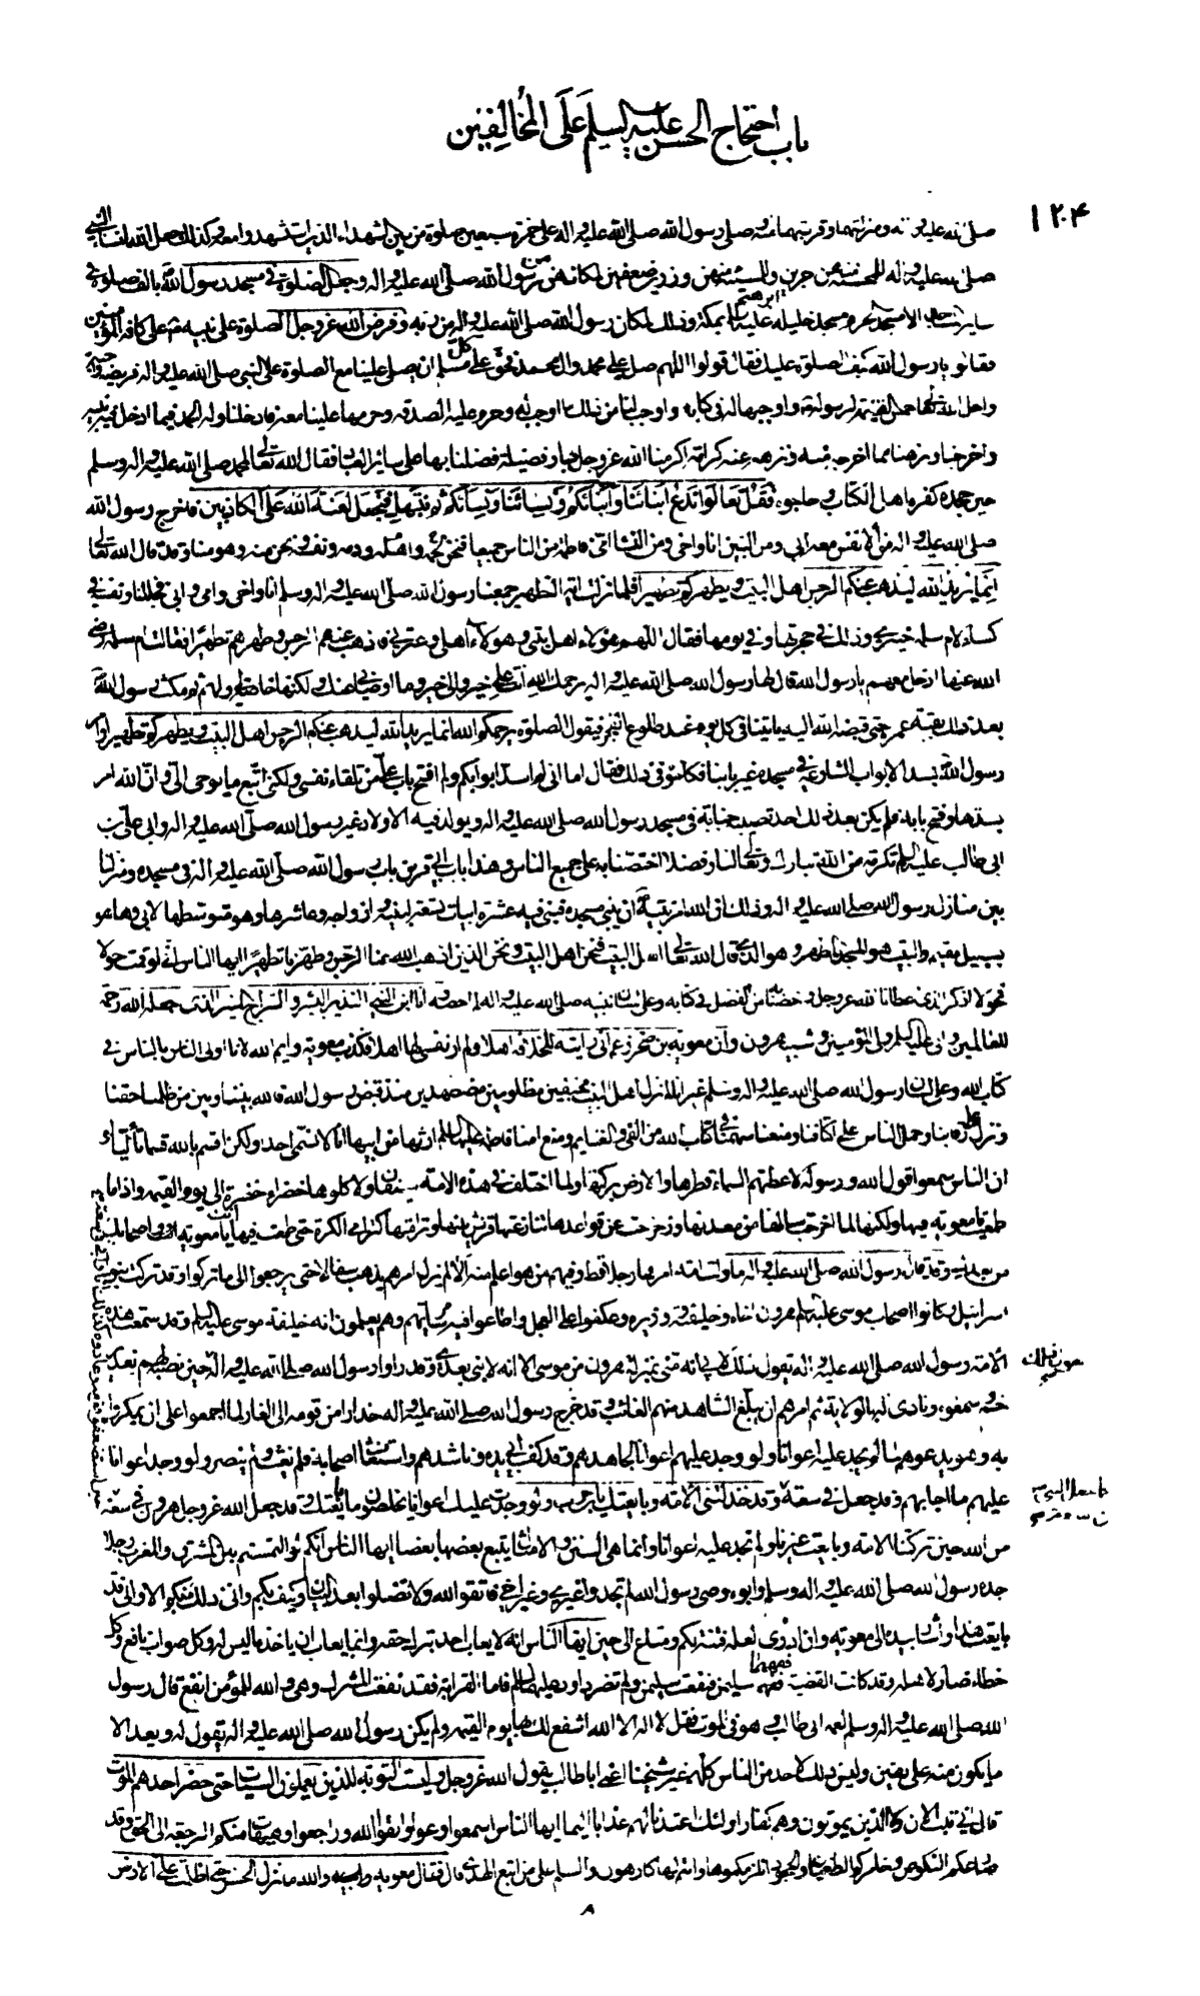 باب احتجاج الحسن عليه السلم على المخالفين
١٢٠۴
صلى الله عليه وآله ومنزلتهما وقربتهما منه وصلى رسول الله صلى الله عليه واله على حمزة سبعين صلوة من بين الشهداء الذين استشهدوا معه وكذلك جعل الله لنساء النبي
صلى الله عليه واله للمحسنة منهن اجرين وللمسيئة منهن وزرين ضعفين لمكانهن من رسول الله صلى الله عليه واله وجعل الصلوة في مسجد رسول الله بالف صلوة في
ساير المساجد الا مسجد الحرام مسجد خليله ابرهيم عليه السلم بمكة وذلك لمكان رسول الله صلى الله عليه واله من ربه وفرض الله عز وجل الصلوة على نبيه على كافة المؤمنين
فقالوا يا رسول الله كيف الصلوة عليك فقال قولوا اللهم صل على محمد وال محمد فحق على كل مسلم ان يصلى علينا مع الصلوة على النبي صلى الله عليه واله فريضة واجبة
واحل الله تعالى خمس الغنيمة لرسوله واوجبها له في كتابه واوجب لنا من ذلك ما اوجب له وحرم عليه الصدقة وحرمها علينا معه فادخلنا وله الحمد فيما ادخل فيه نبيه
واخرجنا ونزهنا مما اخرجه منه ونزهه عنه كرامة اكرمنا الله عز وجل بها وفضيلة فضلنا بها على ساير العباد فقال الله تعالى لمحمد صلى الله عليه واله وسلم
حين جحده كفرة اهل الكتاب وحاجوه فقل تعالوا ندع ابناءنا وابناءكم ونساءنا ونساءكم ثم نبتهل فنجعل لعنة الله على الكاذبين فاخرج رسول الله
صلى الله عليه واله من الانفس معه ابي ومن البنين انا واخي ومن النساء امي فاطمة من الناس جميعا فنحن اهله ولحمه ودمه ونفسه ونحن منه وهو منا وقد قال الله تعالى
انما يريد الله ليذهب عنكم الرجس اهل البيت ويطهركم تطهيرا فلما نزلت اية التطهير جمعنا رسول الله صلى الله عليه واله وسلم انا واخي وامي وابي فجللنا ونفسه في
كساء لام سلمة خيبري وذلك في حجرتها وفي يومها فقال اللهم هؤلاء اهل بيتي وهؤلاء اهلي وعترتي فاذهب عنهم الرجس وطهرهم تطهيرا فقالت ام سلمة رضي
الله عنها ادخل معهم يا رسول الله قال لها رسول الله صلى الله عليه واله يرحمك الله انت على خير والى خير وما ارضاني عنك ولكنها خاصة لي ولهم ثم مكث رسول الله
بعد ذلك بقية عمره حتى قبضه الله اليه ياتينا في كل يوم عند طلوع الفجر فيقول الصلوة يرحمكم الله انما يريد الله ليذهب عنكم الرجس اهل البيت ويطهركم تطهيرا وامر
رسول الله بسد الابواب الشارعة في مسجده غير بابنا فكلموه في ذلك فقال اما اني لم اسد ابوابكم ولم افتح باب على من تلقاء نفسي ولكني اتبع ما يوحى الي وان الله امر
بسدها وفتح بابه فلم يكن بعد ذلك احد تصيبه جنابة في مسجد رسول الله صلى الله عليه واله ويولد فيه الاولاد غير رسول الله صلى الله عليه واله وابي علي بن
ابي طالب عليه السلم تكرمة من الله تبارك وتعالى لنا وفضلا اختصنا به على جميع الناس وهذا باب ابي قرين باب رسول الله صلى الله عليه واله في مسجده ومنزلنا
بين منازل رسول الله صلى الله عليه واله وذلك ان الله امر نبيه ان يبني مسجده فبنى فيه عشرة ابيات تسعة لبنيه وازواجه وعاشرها وهو متوسطها لابي وها هو
بسبيل مقيم والبيت هو المسجد المطهر وهو الذي قال الله تعالى اهل البيت فنحن اهل البيت ونحن الذين اذهب الله عنا الرجس وطهرنا تطهيرا ايها الناس اني لو قمت حولا
فحولا اذكر الذي اعطانا الله عز وجل وخصنا من الفضل في كتابه وعلى لسان نبيه صلى الله عليه واله لم احصه وانا ابن النبي النذير البشير والسراج المنير الذي جعله الله رحمة
للعالمين وابي علي السلم ولي المؤمنين وشبيه هرون وان معوية بن صخر زعم اني رايته للخلافة اهلا ولم ار نفسي لها اهلا فكذب معوية وايم الله لانا اولى الناس بالناس في
كتاب الله وعلى لسان رسول الله صلى الله عليه واله وسلم غير انا لم نزل اهل البيت مخيفين مظلومين مضطهدين منذ قبض رسول الله فالله بيننا وبين من ظلمنا حقنا
ونزل على رقابنا وحمل الناس على اكتافنا ومنعنا سهمنا في كتاب الله من الفيء والغنايم ومنع امنا فاطمة عليها السلم ارثها من ابيها انا لا نسمي احدا ولكن اقسم بالله قسما تاليا لو
ان الناس سمعوا قول الله ورسوله لاعطتهم السماء قطرها والارض بركتها ولما اختلف في هذه الامة سيفان ولاكلوها خضراء خضرة الى يوم القيمة واذا ما
طمعت يا معوية فيها ولكنها لما اخرجت سالفا من معدنها وزحزحت عن قواعدها تنازعتها قريش بينها وترامتها كترامي الكرة حتى طمعت فيها انت يا معوية واصحابك
من بعدك وقد قال رسول الله صلى الله عليه واله ما ولت امة امرها رجلا قط وفيهم من هو اعلم منه الا لم يزل امرهم يذهب سفالا حتى يرجعوا الى ما تركوا وقد تركت بنو
اسرائيل وكانوا اصحاب موسى عليه السلم هرون اخاه وخليفته ووزيره وعكفوا على العجل واطاعوا فيه سامريهم وهم يعلمون انه خليفة موسى عليه السلم وقد سمعت هذه
الامة رسول الله صلى الله عليه واله يقول ذلك لابي انه مني بمنزلة هرون من موسى الا انه لا نبي بعدي وقد راوا رسول الله صلى الله عليه واله حين نصبه لهم بغدير
خم وسمعوه ونادى له بالولاية ثم امرهم ان يبلغ الشاهد منهم الغائب وقد خرج رسول الله صلى الله عليه واله حذارا من قومه الى الغار لما اجمعوا على ان يمكروا
به وهو يدعوهم لما لم يجد عليه اعوانا ولو وجد عليهم اعوانا لجاهدهم وقد كف ابي يده وناشدهم واستغاث اصحابه فلم يغث ولم ينصر ولو وجد اعوانا
عليهم ما اجابهم وقد جعل في سعة وقد خذلتني الامة وبايعتك يا ابن حرب ولو وجدت عليك اعوانا يخلصون ما بايعتك وقد جعل الله عز وجل هرون في سعة
من الله حين تركتنا الامة وبايعت غيرنا ولم نجد عليه اعوانا وانما هي السنن والامثال يتبع بعضها بعضا ايها الناس انكم لو التمستم بين المشرق والمغرب رجلا
جده رسول الله صلى الله عليه واله وسلم وابوه وصي رسول الله لم تجدوا غيري وغير اخي فاتقوا الله ولا تضلوا بعد البيان وكيف بكم واني ذلك منكم الا واني قد
بايعت هذا واشار بيده الى معوية وان ادري لعله فتنة لكم ومتاع الى حين ايها الناس انه لا يعاب احد بترك حقه وانما يعاب ان ياخذ ما ليس له وكل صواب نافع وكل
خطاء ضار لاهله وقد كانت القضية ففهمها سليمن فنفعت سليمن ولم تضر داود عليهما السلم فاما القرابة فقد نفعت المشرك وهي والله للمؤمن انفع قال رسول
الله صلى الله عليه واله وسلم لعمه ابي طالب وهو في الموت قل لا اله الا الله اشفع لك بها يوم القيمة ولم يكن رسول الله صلى الله عليه واله يقول له ويعد الا
ما يكون منه على يقين وليس ذلك لاحد من الناس كلهم غير شيخنا اعني ابا طالب يقول الله عز وجل وليست التوبة للذين يعملون السيئات حتى اذا حضر احدهم الموت
قال اني تبت الان ولا الذين يموتون وهم كفار اولئك اعتدنا لهم عذابا اليما ايها الناس اسمعوا وعوا واتقوا الله وراجعوا وهيهات منكم الرجعة الى الحق وقد
صارعكم النكوص وخامركم الطغيان والجحود انلزمكموها وانتم لها كارهون والسلم على من اتبع الهدى قال فقال معوية والله ما نزل الحسن حتى اظلمت على الارض
٨